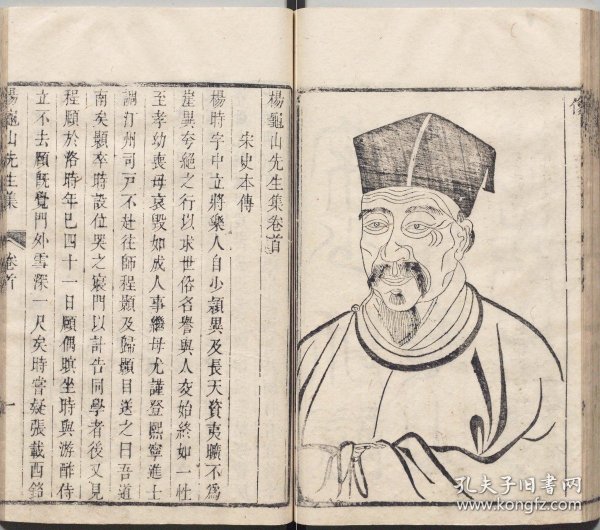 像
楊龜山先生集卷首
宋史本傳
楊時字中立將樂人自少頴異及長天資夷曠不爲
崖異夸絕之行以求世俗名譽與人交始終如一性
至孝幼喪母哀毀如成人事繼母尤謹登熙寧進士
調汀州司戸不赴往師程顥及歸顥目送之曰吾道
南矣顥卒時設位哭之寢門以訃告同學者後又見
程頤於洛時年已四十一日頤偶瞑坐時與游酢侍
立不去頤旣覺門外雪深一尺矣時嘗疑張載西銘
楊龜山先生集 卷首 一
孔夫子旧书网
www.kongfz.com